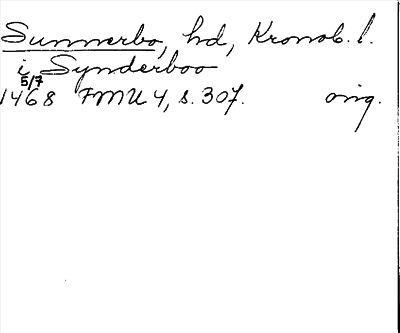 Sunnerbo, hd, Kronob. l.
i Synderboo
5/7
1468 FMU 4, s. 307. orig.